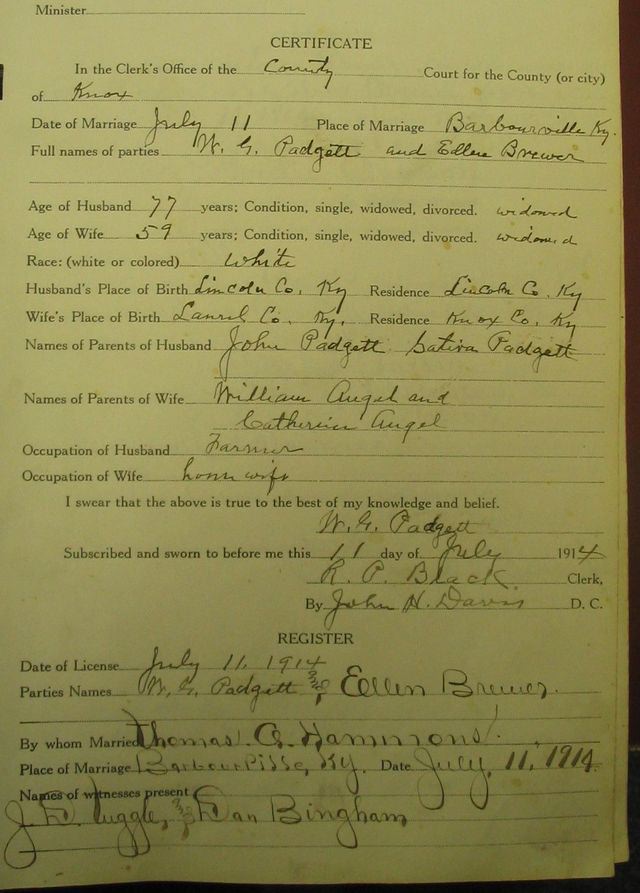 Minister
CERTIFICATE
In the Clerk's Office of the County Court for the County (or city)
of Knox
Date of Marriage July 11 Place of Marriage Barbourville Ky.
Full names of parties W. G. Padgett and Edlen Brewer
Age of Husband 77 years; Condition, single, widowed, divorced. widowed
Age of Wife 59 years; Condition, single, widowed, divorced. widowed
Race: (white or colored) White
Husband's Place of Birth Lincoln Co, Ky Residence Lincoln Co, Ky
Wife's Place of Birth Laurel Co, Ky, Residence Knox Co, Ky
Names of Parents of Husband John Padgett Padgett
Names of Parents of Wife William Angel and
Catherine Angel
Occupation of Husband Farmer
Occupation of Wife house wife
I swear that the above is true to the best of my knowledge and belief.
W. G. Padgett
Subscribed and sworn to before me this 11 day of July 1914
R. P. Black Clerk,
By John H. Davis D. C.
REGISTER
Date of License July 11, 1914
Parties Names W. G. Padgett & Edlen Brewer.
By whom Married Thomas. G. Hammons.
Place of Marriage Barbourville, Ky. Date July, 11, 1914.
Names of witnesses present
J. D. Tuggle, & Dan Bingham